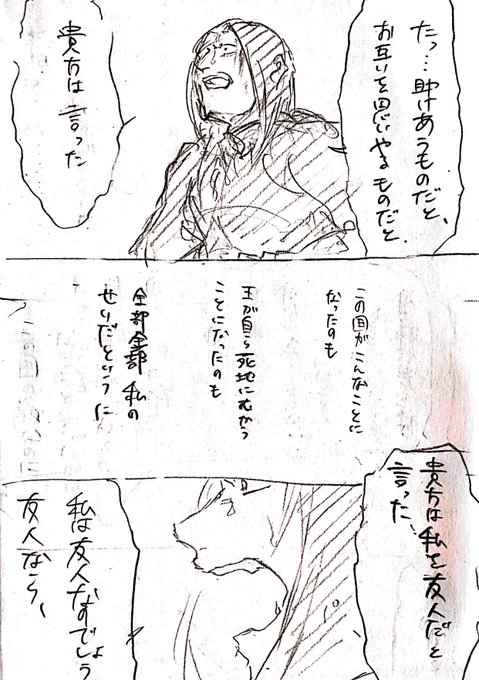 たっ…助けあうものだと、
お互いを思いやるものだと
貴方は言った
この国がこんなことに
なったのも
王が自ら死地にむかう
ことになったのも
全部全部私の
せいだというに
貴方は私を友人だと
言った
私は友人なのでしょう
友人なら、